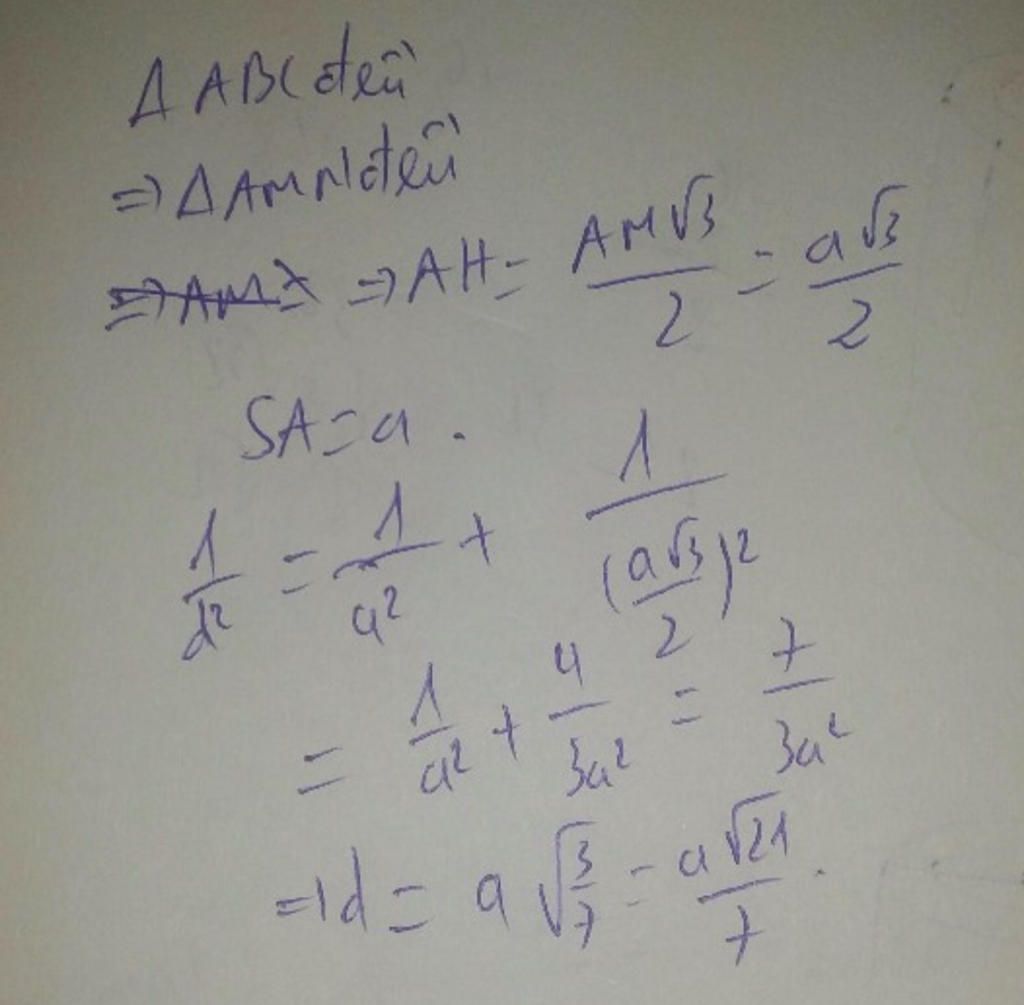 Δ ABC đều
=> Δ AMN đều
=> AH = AM√3/2 = a√3/2
SA = a.
1/d² = 1/a² + 1/(a√3/2)²
= 1/a² + 4/3a² = 7/3a²
=> d = a√3/7 = a√21/7.